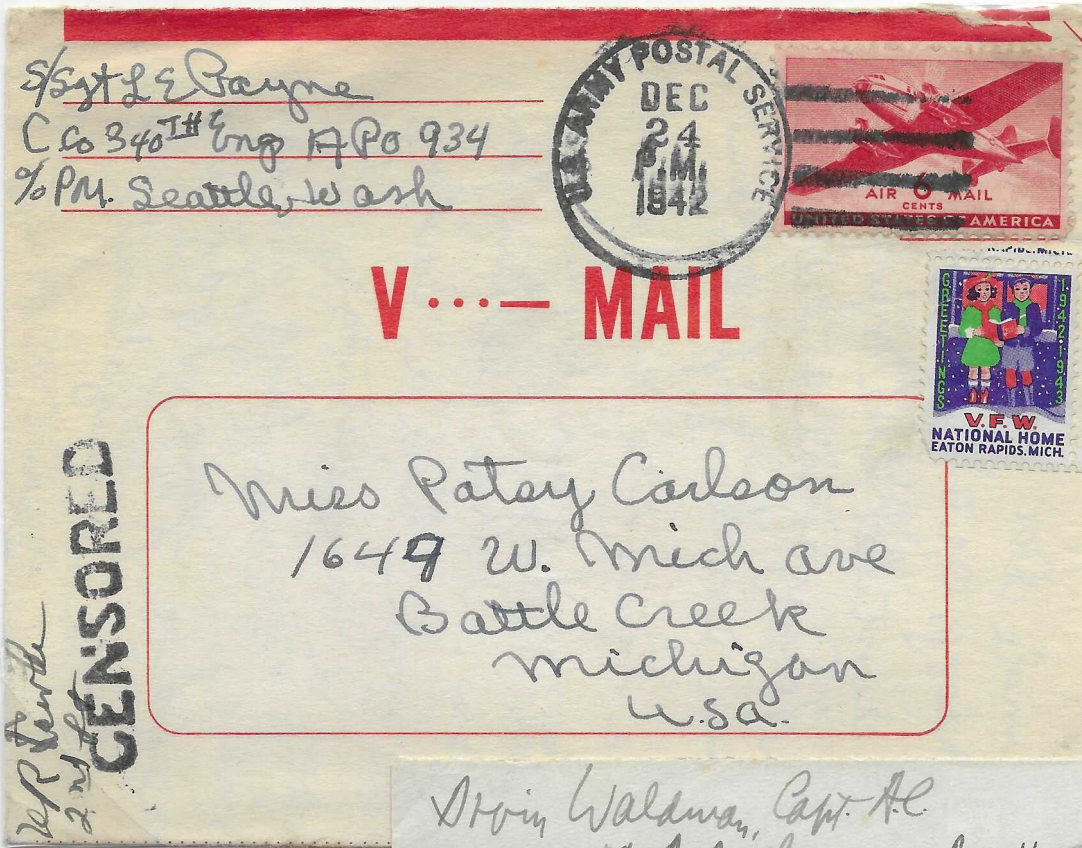 S/Sgt L E Payne
C Co 340TH Eng APO 934
c/o PM. Seattle, Wash
U.S. ARMY POSTAL SERVICE
DEC
24
P.M.
1942
AIR 6 MAIL
CENTS
UNITED STATES OF AMERICA
RAPIDS, MICH.
GREETINGS
1942-1943
V.F.W.
NATIONAL HOME
EATON RAPIDS, MICH.
V ...— MAIL
Miss Patsy Carlson
1649 W. Mich ave
Battle Creek
Michigan
U.Sa.
CENSORED
2nd Lt
Waldman, Capt. A.C.